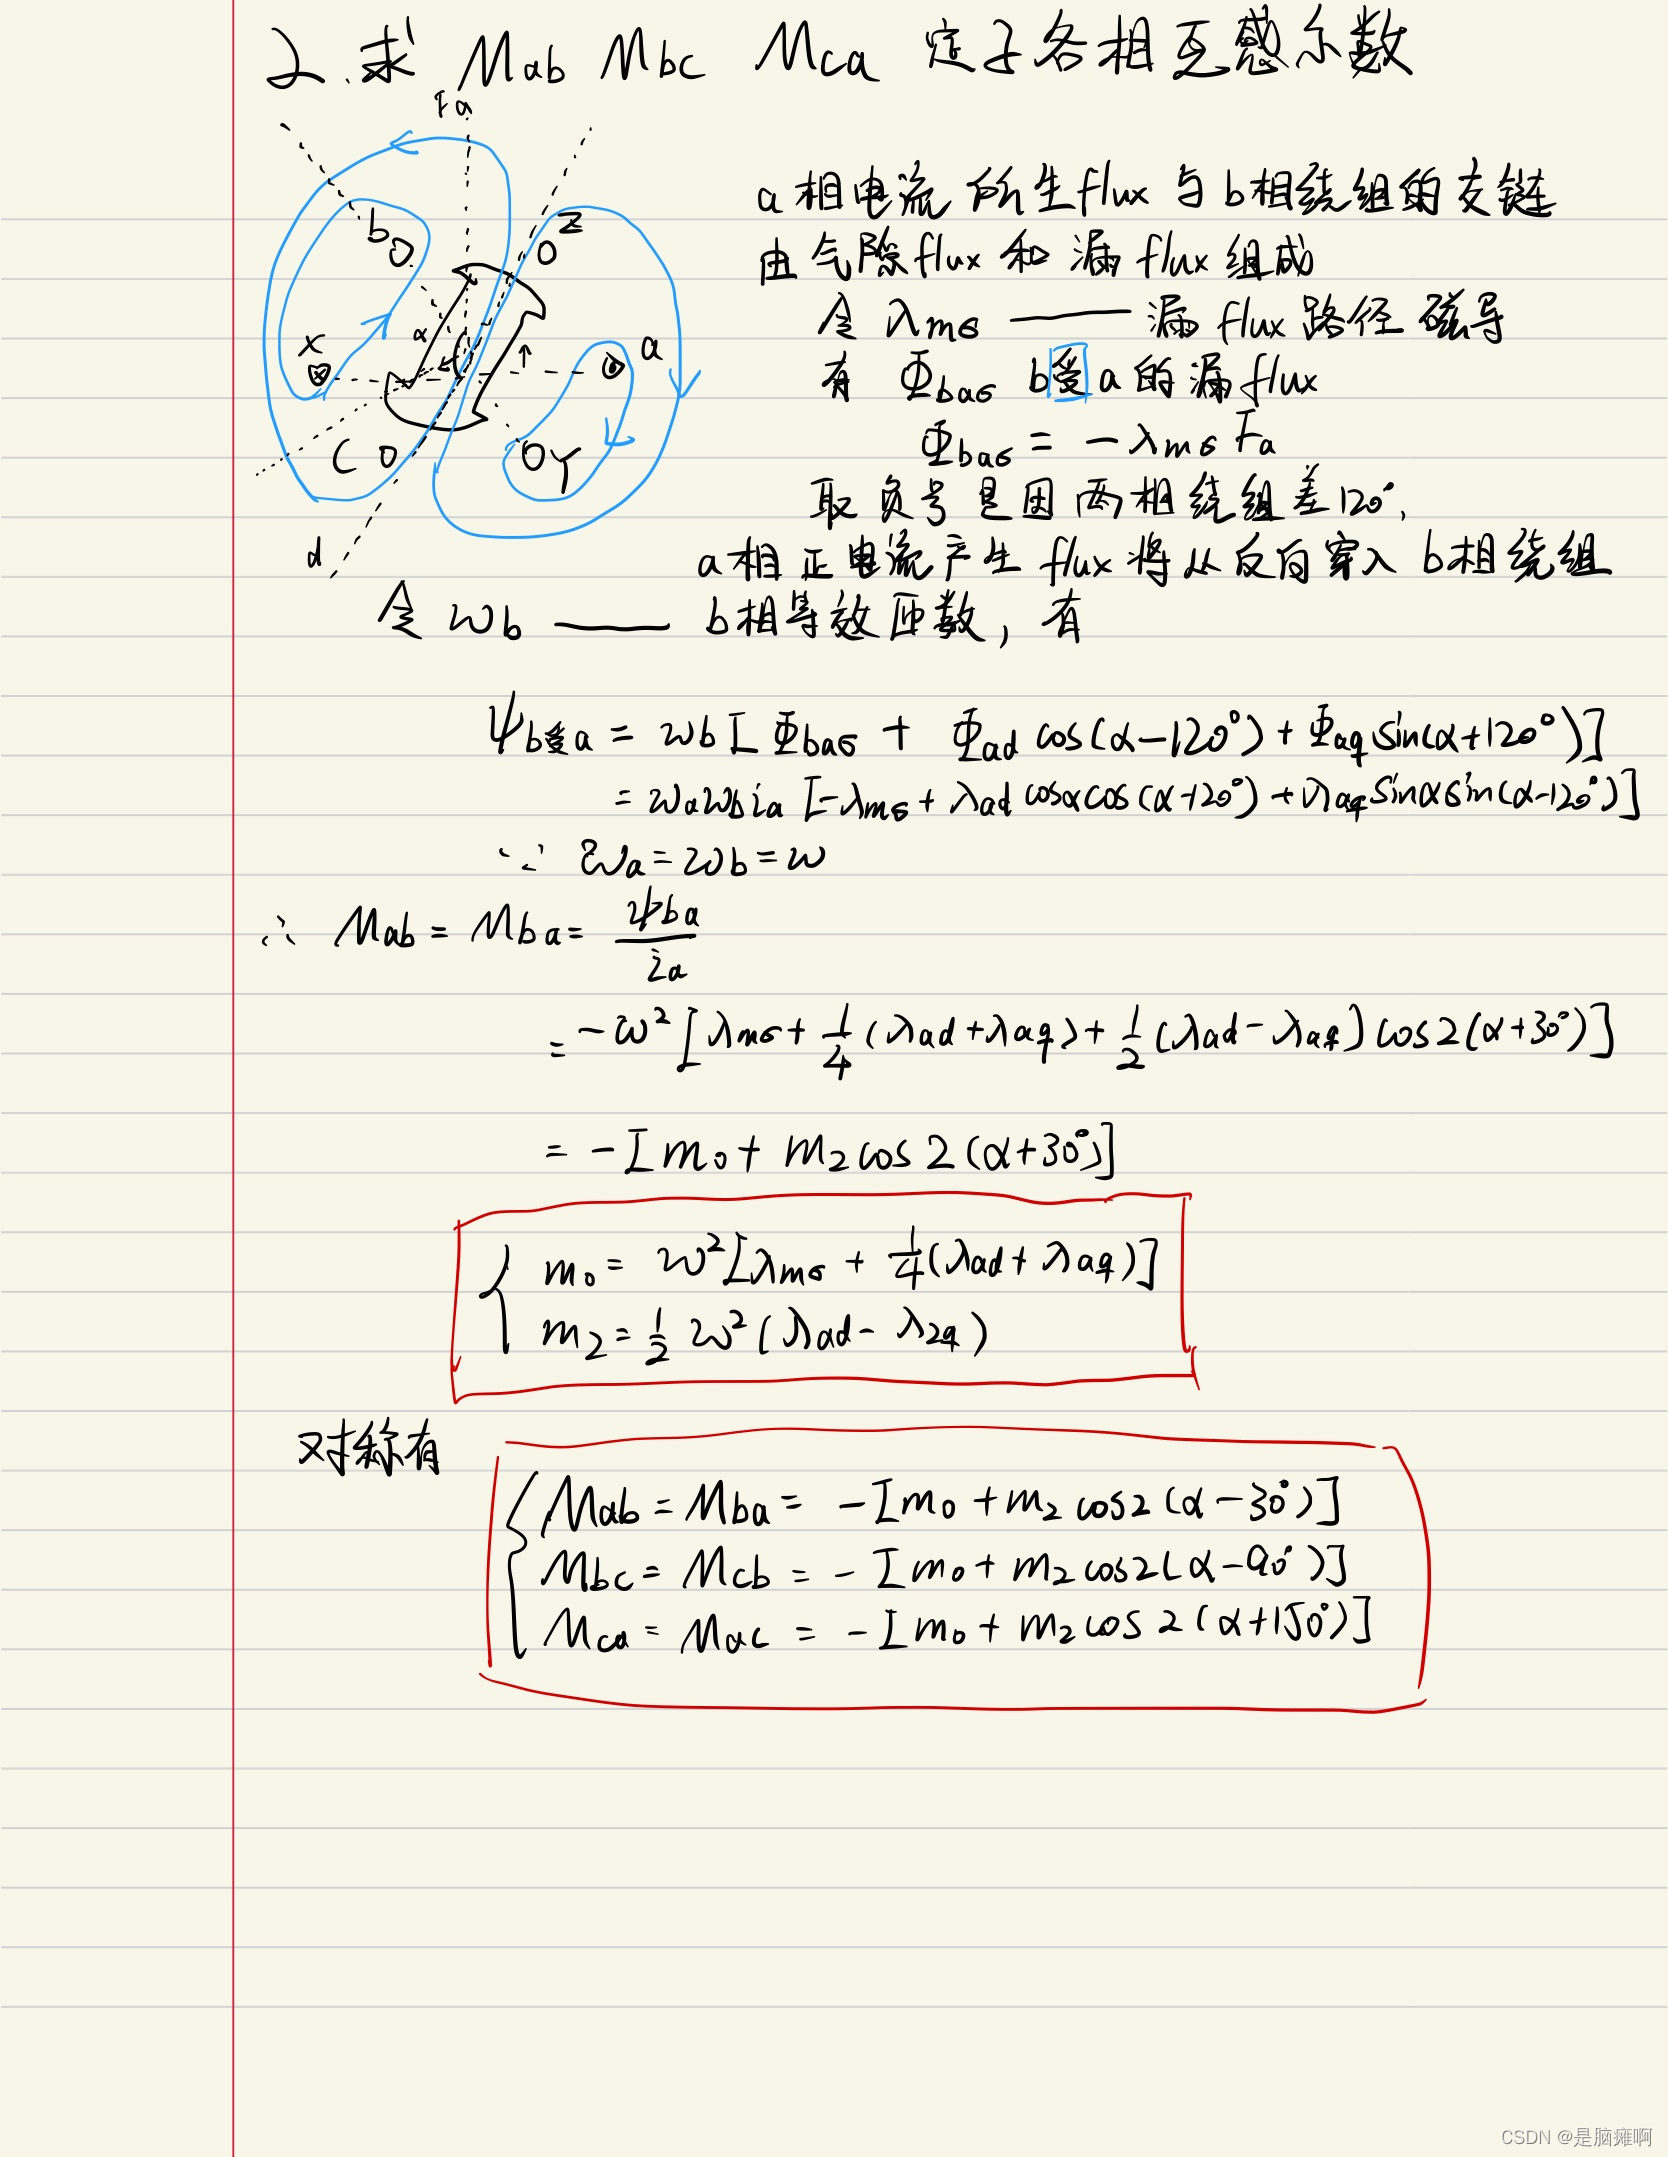 2.求 Mab Mbc Mca 定子各相互感系数
Fa
a相电流所生flux与b相绕组的交链
b
Z
由气隙flux和漏flux组成
令 λmσ —— 漏flux路径磁导
α
x
a
有 Φbaσ b受a的漏flux
Φbaσ = -λmσ Fa
C
Y
取负号是因两相绕组差120°,
d
a相正电流产生flux将从反向穿入b相绕组
令 ωb —— b相等效匝数, 有
ψb受a = ωb[Φbaσ + Φad cos(α-120°) + Φaq sin(α+120°)]
= ωaωbia [-λmσ + λad cosα cos(α-120°) + λaq sinα sin(α-120°)]
∵ ωa = ωb = ω
∴ Mab = Mba = ψba / ia
= -ω² [λmσ + 1/4 (λad + λaq) + 1/2 (λad - λaq) cos2(α+30°)]
= -[m0 + m2 cos2(α+30°)]
m0 = ω²[λmσ + 1/4(λad + λaq)]
m2 = 1/2 ω² (λad - λ2q)
对称有
Mab = Mba = -[m0 + m2 cos2(α-30°)]
Mbc = Mcb = -[m0 + m2 cos2(α-90°)]
Mca = Mac = -[m0 + m2 cos2(α+150°)]
CSDN @是脑瘫啊